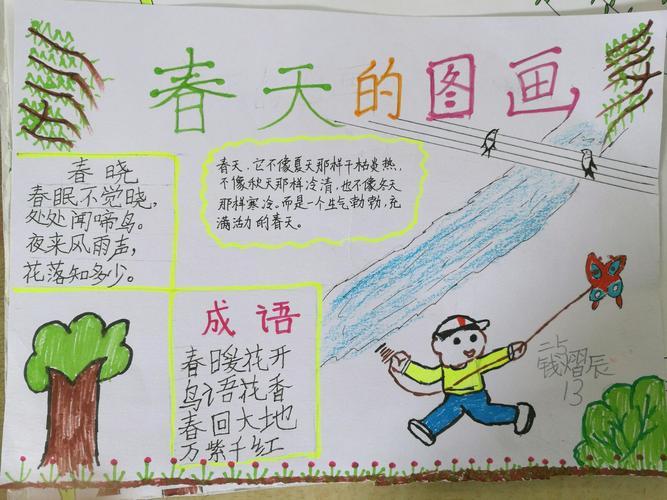 春天的图画
春晓
春眠不觉晓，
处处闻啼鸟。
夜来风雨声，
花落知多少。
春天，它不像夏天那样干枯炎热，
不像秋天那样冷清，也不像冬天
那样寒冷。而是一个生气勃勃，充
满活力的春天。
成语
春暖花开
鸟语花香
春回大地
万紫千红
钱熠辰
13